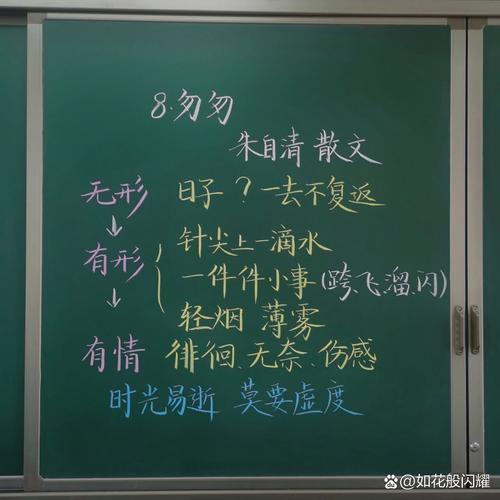 8.匆匆
朱自清 散文
无形 日子？一去不复返
↓
针尖上一滴水
有形 一件件小事(跨、飞、溜、闪)
↓
轻烟 薄雾
有情 徘徊、无奈、伤感
时光易逝 莫要虚度
@如花般闪耀